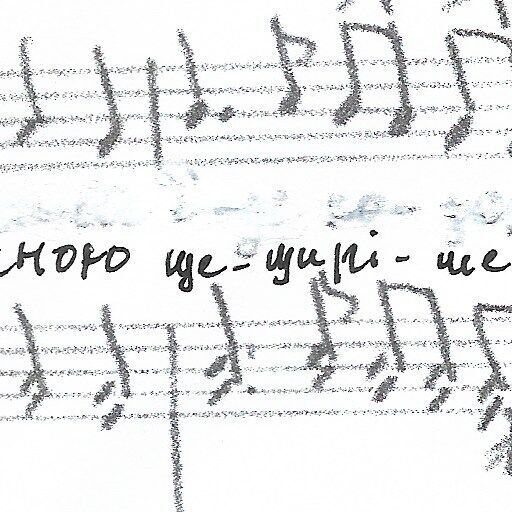 сного ще-щирі-ше